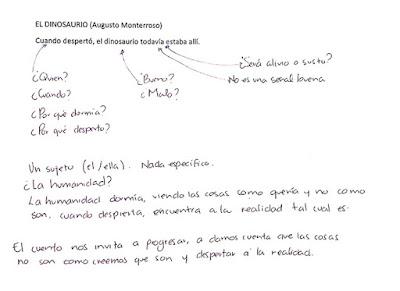 EL DINOSAURIO (Augusto Monterroso)
Cuando despertó, el dinosaurio todavía estaba allí.
¿Será alivio o susto?
¿Quien? ¿Bueno? No es una señal buena
¿Cuando? ¿Malo?
¿Por qué dormía?
¿Por qué despertó?
Un sujeto (el/ella). Nada específico.
¿La humanidad?
La humanidad dormía, viendo las cosas como quería y no como
son, cuando despierta, encuentra a la realidad tal cual es.
El cuento nos invita a progresar, a darnos cuenta que las cosas
no son como creemos que son y despertar a la realidad.